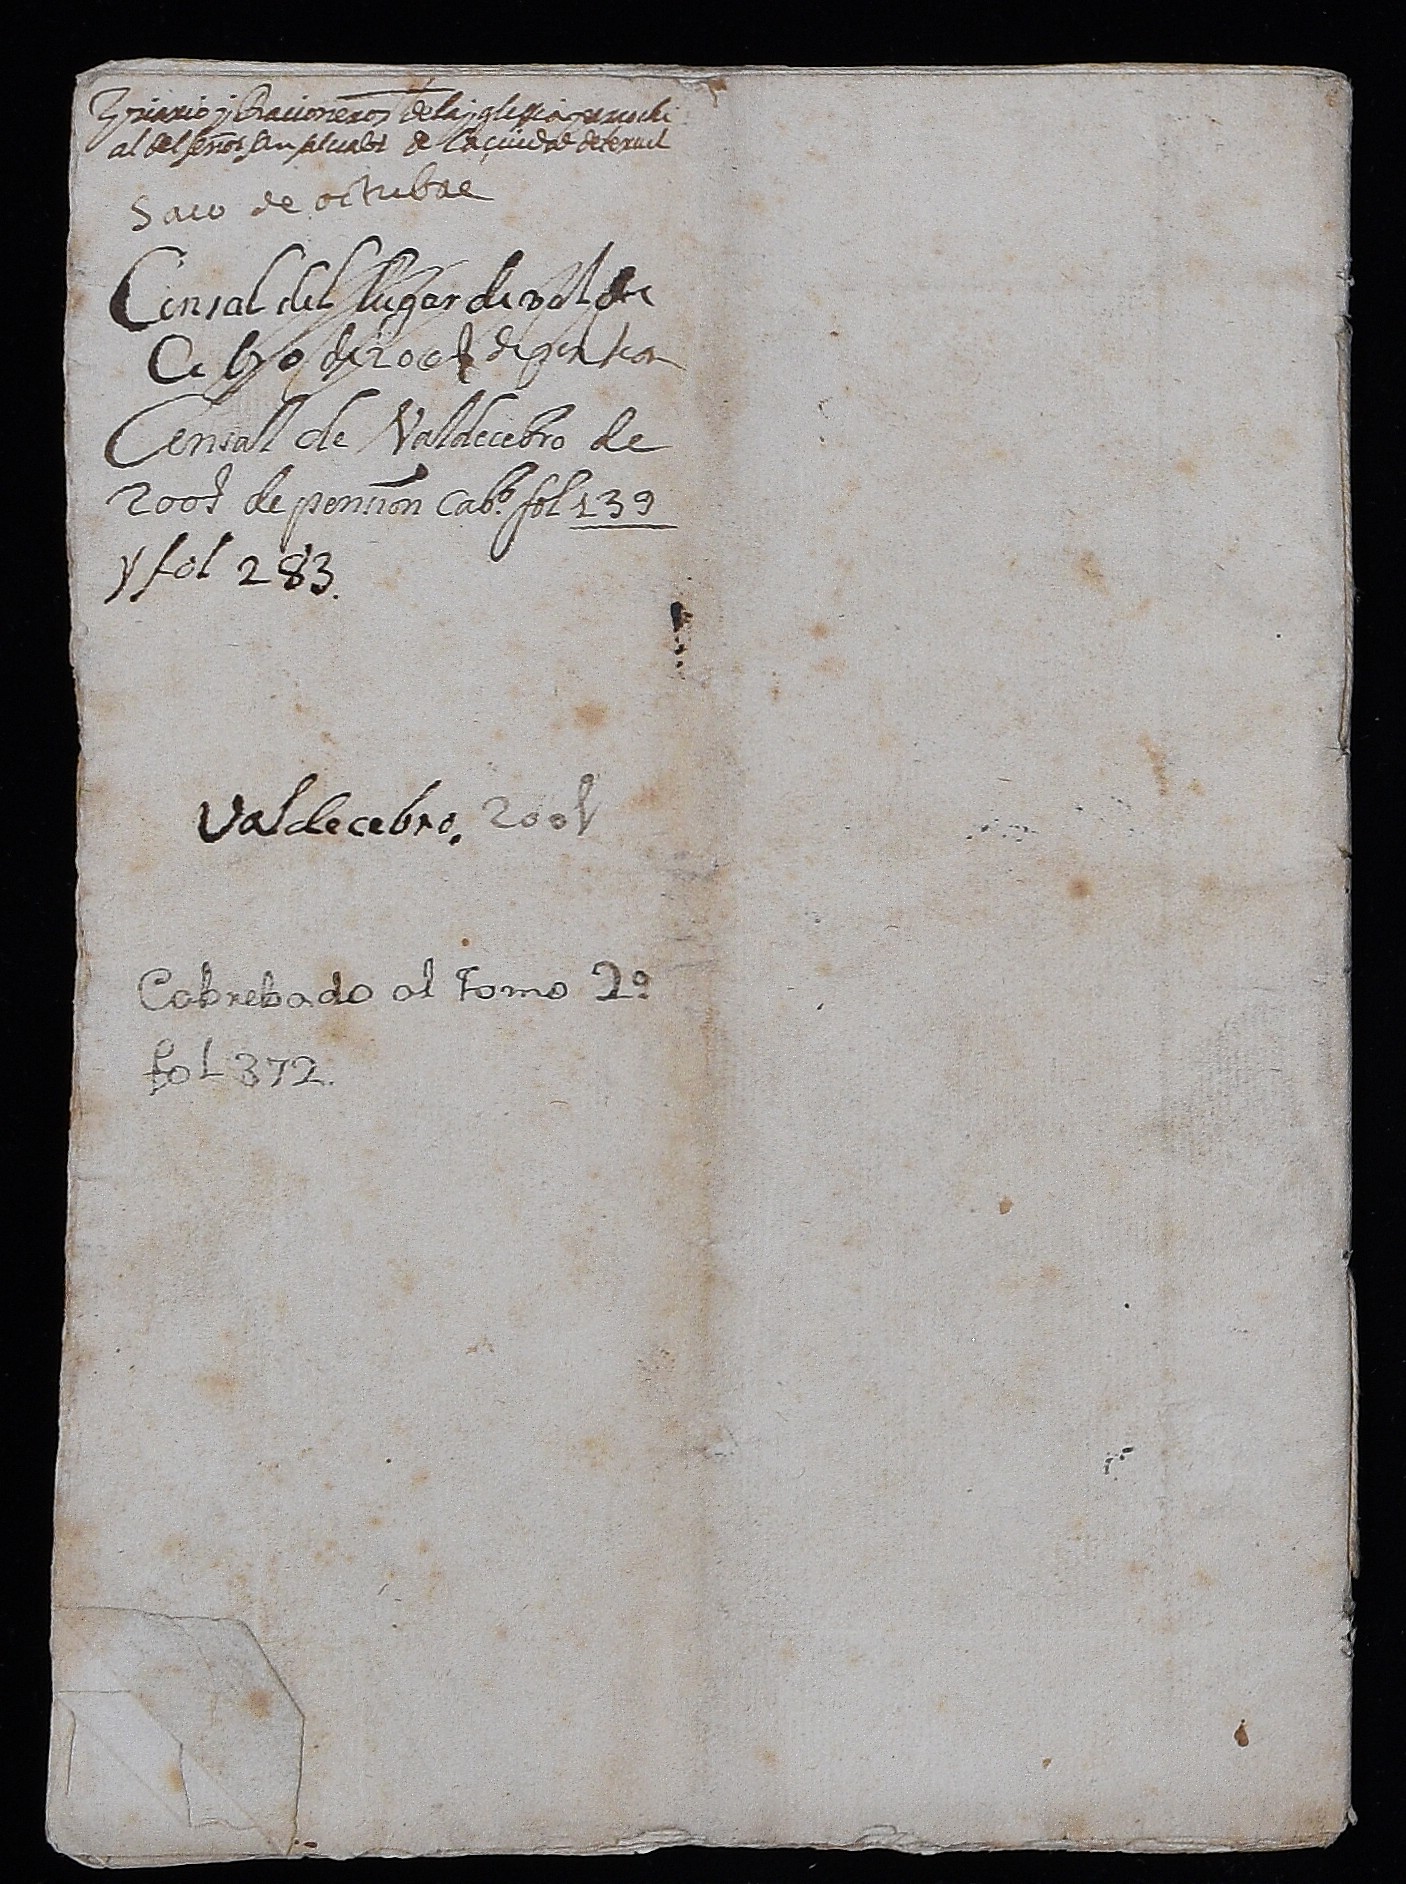 y racioneros de la yglesia parrochi
al del señor san saluador de la ciudad de teruel
Saco de octubre
Censal del lugar de val de
Cebro de 200 s de pension
Censall de Valdecebro de
200 s de pension cab.º fol 139
y fol 283.
Valdecebro. 200 s
Cabrebado al tomo 2º
fol 372.